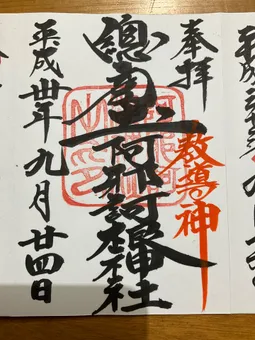 奉拝
教導神
總産土阿邪訶根神社
平成丗年九月廿四日